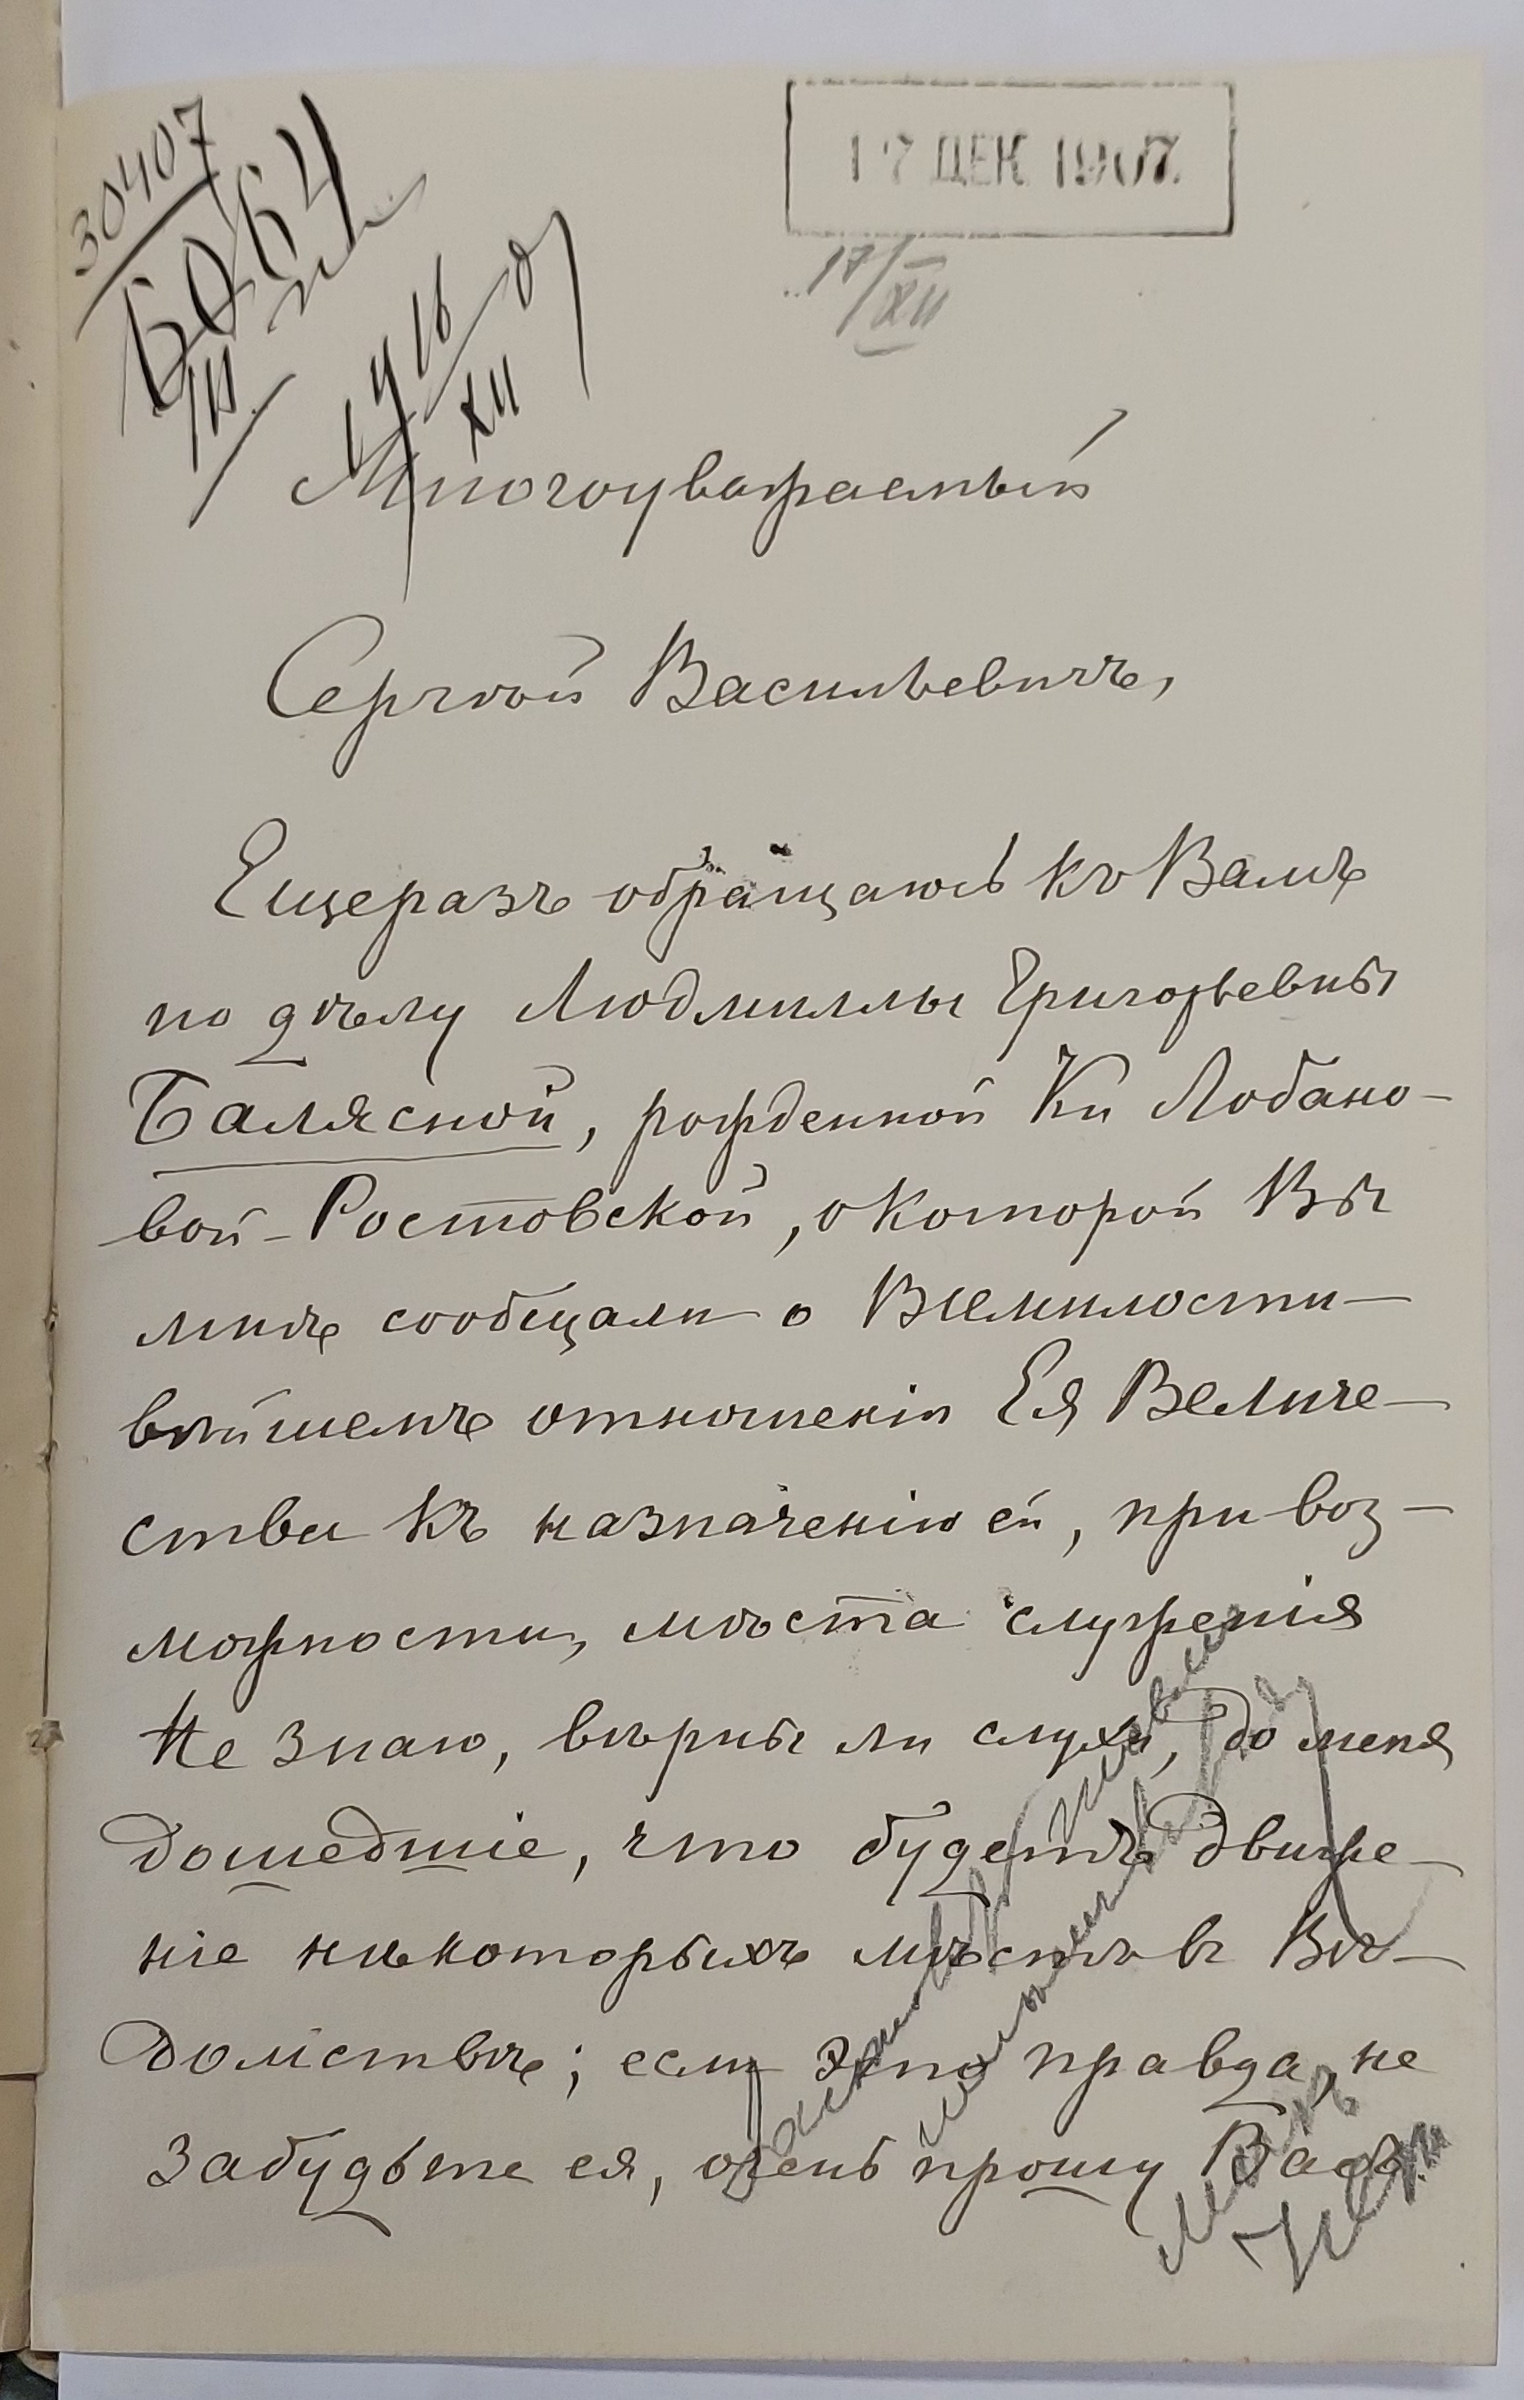 30407
6064
17 ДЕК 1907.
17/XII
16/XII 07
Многоуважаемый
Сергѣй Васильевичъ,
Ещеразъ обращаюсь къ Вамъ
по дѣлу Людмиллы Григорьевны
Балясной, рожденной Кн Лобано-
вой-Ростовской, о которой Вы
мнѣ сообщали о Всемилости-
вѣйшемъ отношеніи Ея Величе-
ства къ назначенію ей, при воз-
можности, мѣста служенія
Не знаю, вѣрны ли слухи, до меня
дошедшіе, что будетъ движе-
ніе нѣкоторыхъ мѣстъ въ Вѣ-
домствѣ; если это правда, не
забудьте ея, очень прошу Васъ